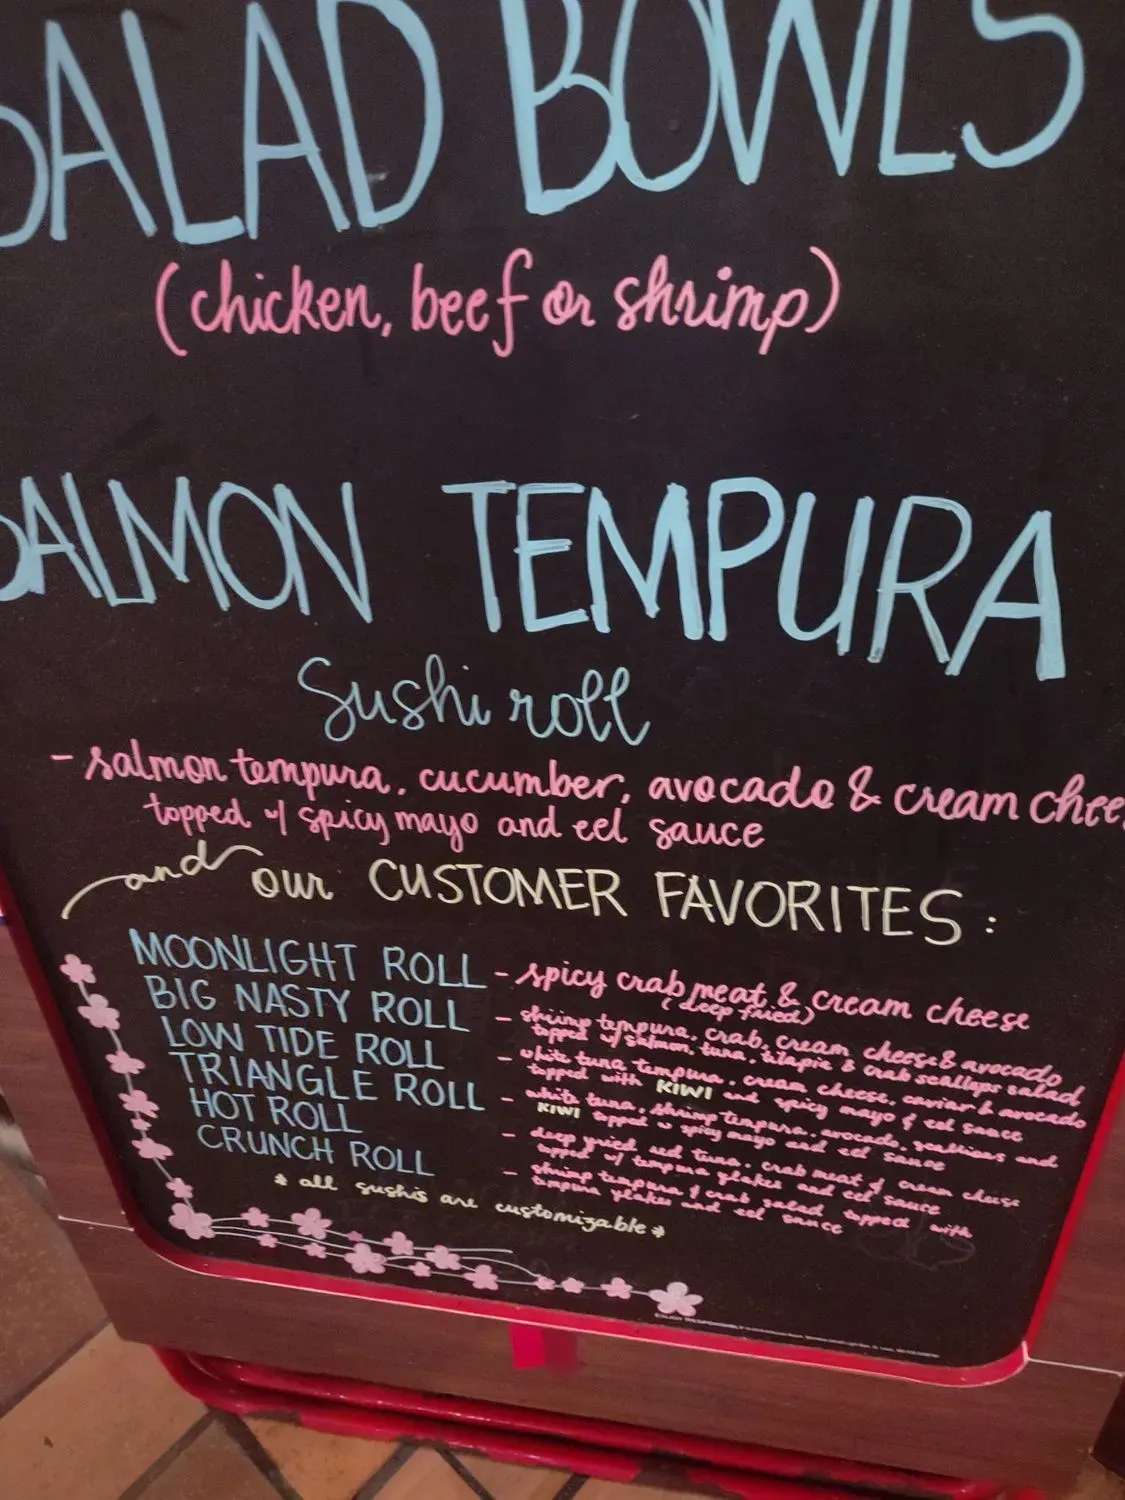 SALAD BOWLS
(chicken, beef or shrimp)
SALMON TEMPURA
Sushi roll
- salmon tempura, cucumber, avocado & cream chee
topped w/ spicy mayo and eel sauce
and our CUSTOMER FAVORITES:
MOONLIGHT ROLL - spicy crab meat & cream cheese
(deep fried)
BIG NASTY ROLL - shrimp tempura, crab, cream cheese & avocado
topped w/ salmon, tuna, tilapia & crab scallops salad
LOW TIDE ROLL - white tuna tempura, cream cheese, caviar & avocado
topped with KIWI and spicy mayo & eel sauce
TRIANGLE ROLL - white tuna, shrimp tempura, avocado, scallions and
KIWI topped w spicy mayo and eel sauce
HOT ROLL - deep fried, red tuna, crab meat & cream cheese
topped w/ tempura flakes and eel sauce
CRUNCH ROLL - shrimp tempura & crab salad topped with
tempura flakes and eel sauce
* all sushis are customizable *